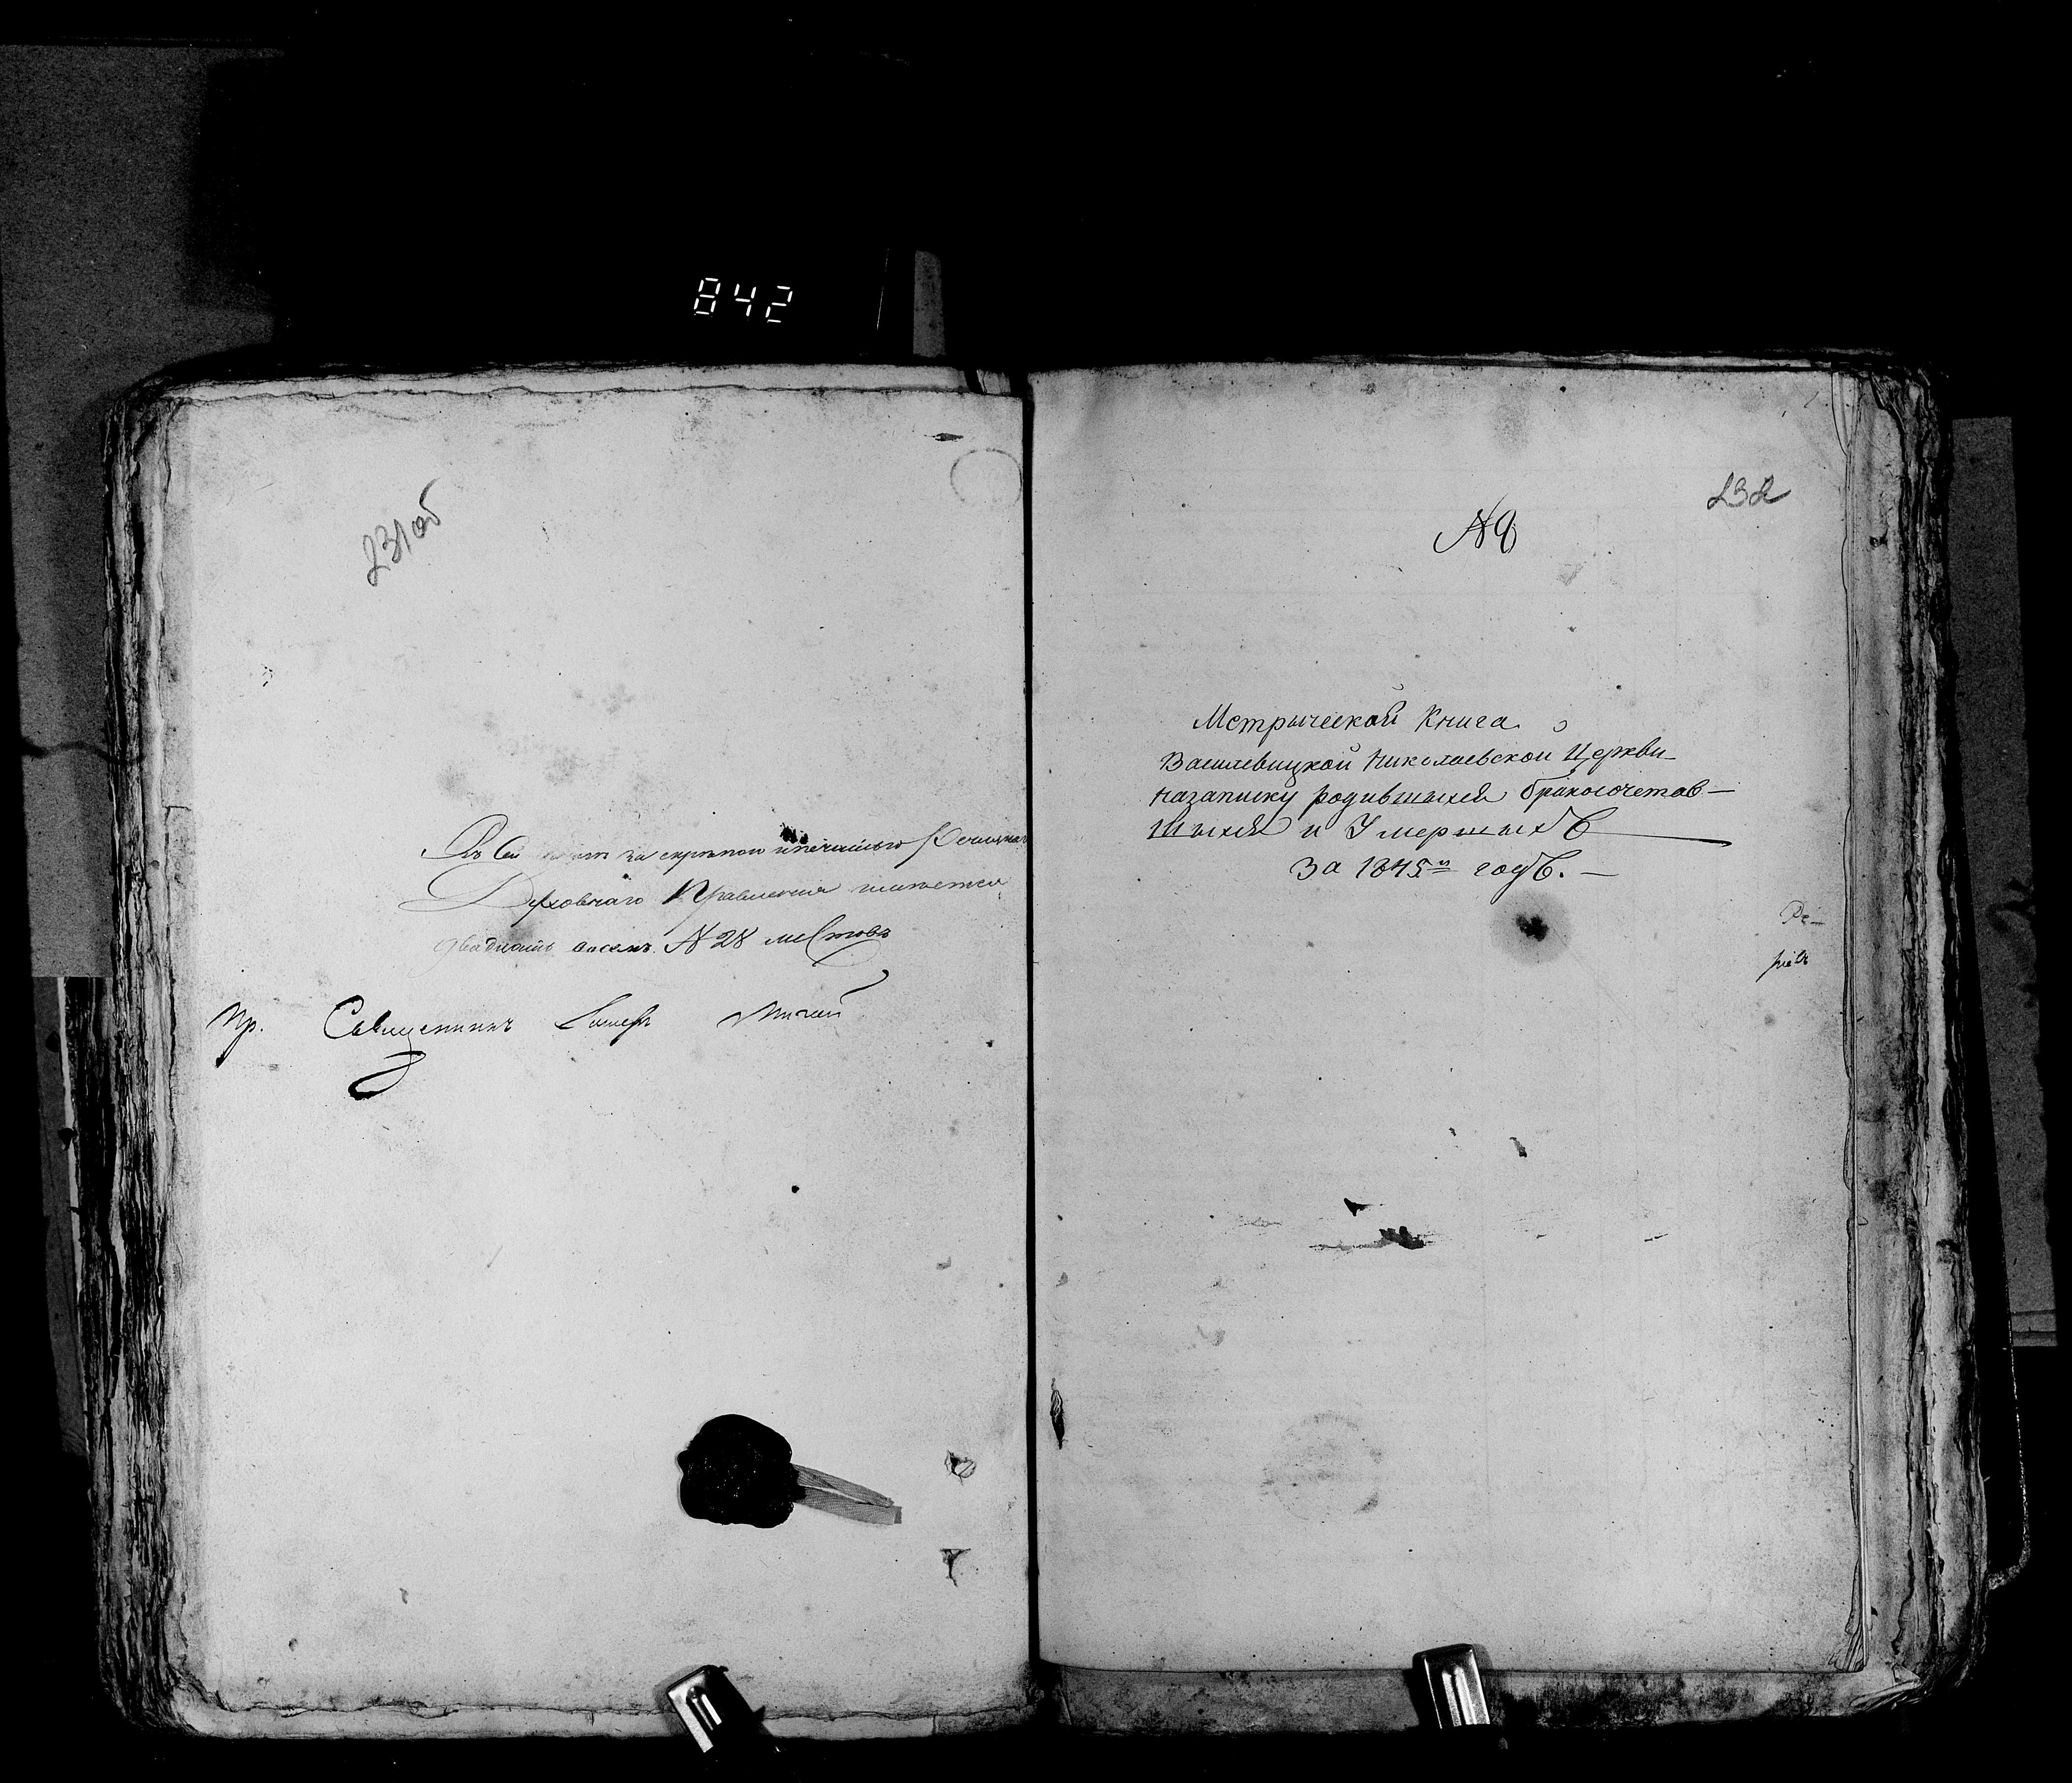 842
231 об
Въ сей за скрепою и печатью Речицкаго
Духовнаго Правления
двадцать восемь № 28 листовъ
Пр. Священникъ
232
№ 9
Метрыческой Книга
Василевицкой Николаевской Церкви
назаписку родившыхся бракосочетав-
шыхся и Умершыхъ
За 1845й годъ.
Ре-